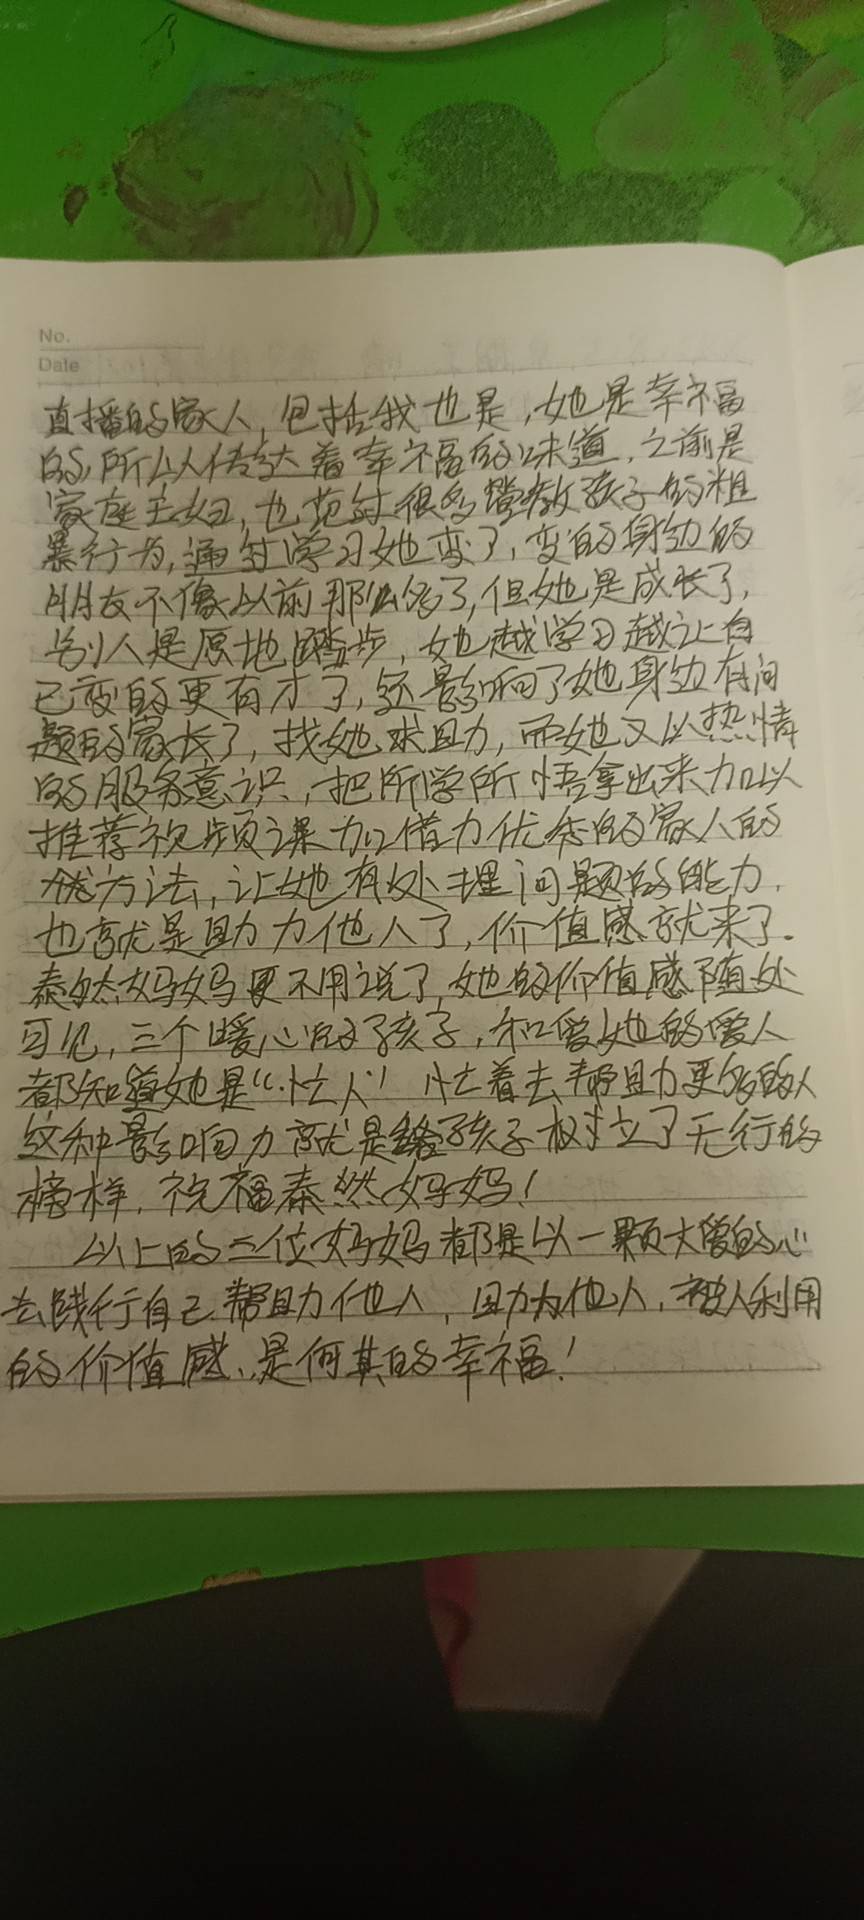 No.
Date
直播的家人,包括我也是,她是幸福
的,所以传达着幸福的味道,之前是
家庭主妇,也范过很多管教孩子的粗
暴行为,通过学习她变了,变的身边的
朋友不像以前那么多了,但她是成长了,
别人是原地踏步,她越学习越让自
己变的更有才了,还影响了她身边有问
题的家长了,找她求助,而她又以热情
的服务意识,把所学所悟拿出来加以
推荐视频课加借力优秀的家人的
方法,让她有处理问题的能力,
也就是助力他人了,价值感就来了.
泰然妈妈更不用说了,她的价值感随处
可见,三个暖心的孩子,和爱她的爱人
都知道她是“忙人”忙着去帮助更多的人
这种影响力就是给孩子树立了无行的
榜样,祝福泰然妈妈!
以上的三位妈妈都是以一颗大爱的心
去践行自己帮助他人,助力他人,被人利用
的价值感,是何其的幸福!